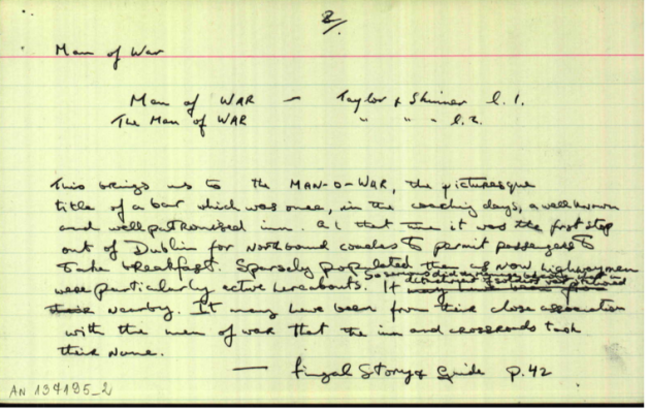 2/
Man of War
Man of WAR — Taylor & Skinner l. 1.
The Man of WAR " " - l. 2.
This brings us to the MAN-O-WAR, the picturesque
title of a bar which was once, in the coaching days, a well known
and well patronised inn. At that time it was the first stop
out of Dublin for northbound coaches to permit passengers to
take breakfast. Sparsely populated then as now highwaymen
were particularly active hereabouts. It may have been from
their nearby. It may have been from their close association
with the men of war that the inn and crossroads took
their name.
— Fingal Story & Guide p. 42
AN 134195_2